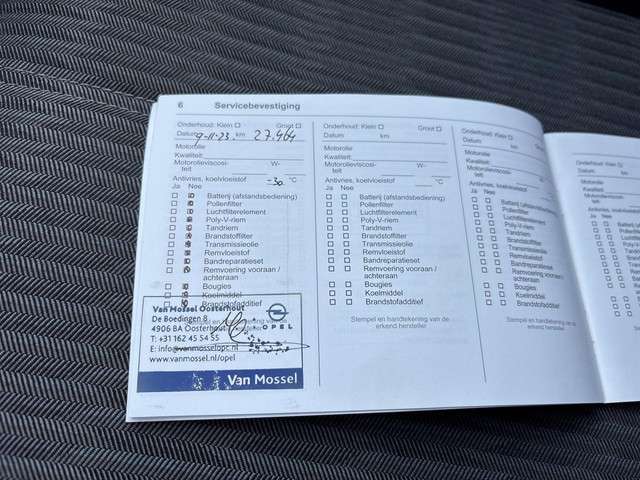 6 Servicebevestiging
Onderhoud: Klein Groot
Datum 9-11-23. km 27.464
Motorolie
Kwaliteit:
Motorolieviscosi- W-
teit
Antivries, koelvloeistof -30 °C
Ja Nee
Batterij (afstandsbediening)
Pollenfilter
Luchtfilterelement
Poly-V-riem
Tandriem
Brandstoffilter
Transmissieolie
Remvloeistof
Bandreparatieset
Remvoering vooraan /
achteraan
Bougies
Koelmiddel
Brandstofadditief
Van Mossel Oosterhout
De Boedingen 8
4906 BA Oosterhout
T: +31 162 45 54 55
E: info@vanmosselopc.nl
www.vanmossel.nl/opel
OPEL
Van Mossel
Onderhoud: Klein Groot
Datum km
Motorolie
Kwaliteit:
Motorolieviscosi- W-
teit
Antivries, koelvloeistof °C
Ja Nee
Batterij (afstandsbediening)
Pollenfilter
Luchtfilterelement
Poly-V-riem
Tandriem
Brandstoffilter
Transmissieolie
Remvloeistof
Bandreparatieset
Remvoering vooraan /
achteraan
Bougies
Koelmiddel
Brandstofadditief
Stempel en handtekening van de
erkend hersteller
Onderhoud: Klein Groot
Datum km
Motorolie
Kwaliteit:
Motorolieviscosi- W-
teit
Antivries, koelvloeistof °C
Ja Nee
Batterij (afstandsbediening)
Pollenfilter
Luchtfilterelement
Poly-V-riem
Tandriem
Brandstoffilter
Transmissieolie
Remvloeistof
Bandreparatieset
Remvoering vooraan /
achteraan
Bougies
Koelmiddel
Brandstofadditief
Stempel en handtekening van de
erkend hersteller
Onderhoud: Klein
Datum
Motorolie
Kwaliteit:
Motorolieviscosi-
teit
Antivries, koelvloeistof
Ja Nee